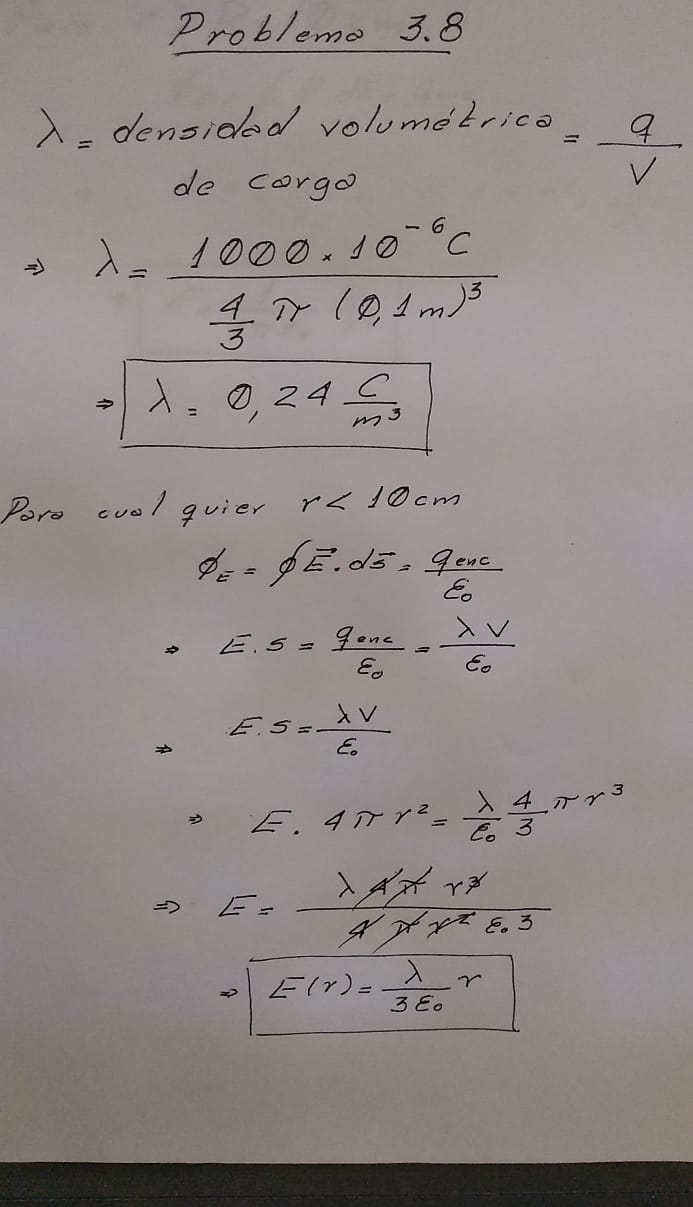 Problema 3.8
λ = densidad volumétrica = q/V
de carga
⇒ λ = 1000 . 10⁻⁶ C / (4/3 π (0,1m)³)
⇒ λ = 0,24 C/m³
Para cualquier r < 10cm
ϕ_E = ∮ E⃗ . ds⃗ = q enc/ε₀
⇒ E . s = q enc/ε₀ = λV/ε₀
⇒ E . s = λV/ε₀
⇒ E . 4πr² = λ/ε₀ 4/3 πr³
⇒ E = λ 4 π r³ / (4 π r² ε₀ 3)
⇒ E(r) = λ/(3ε₀) r